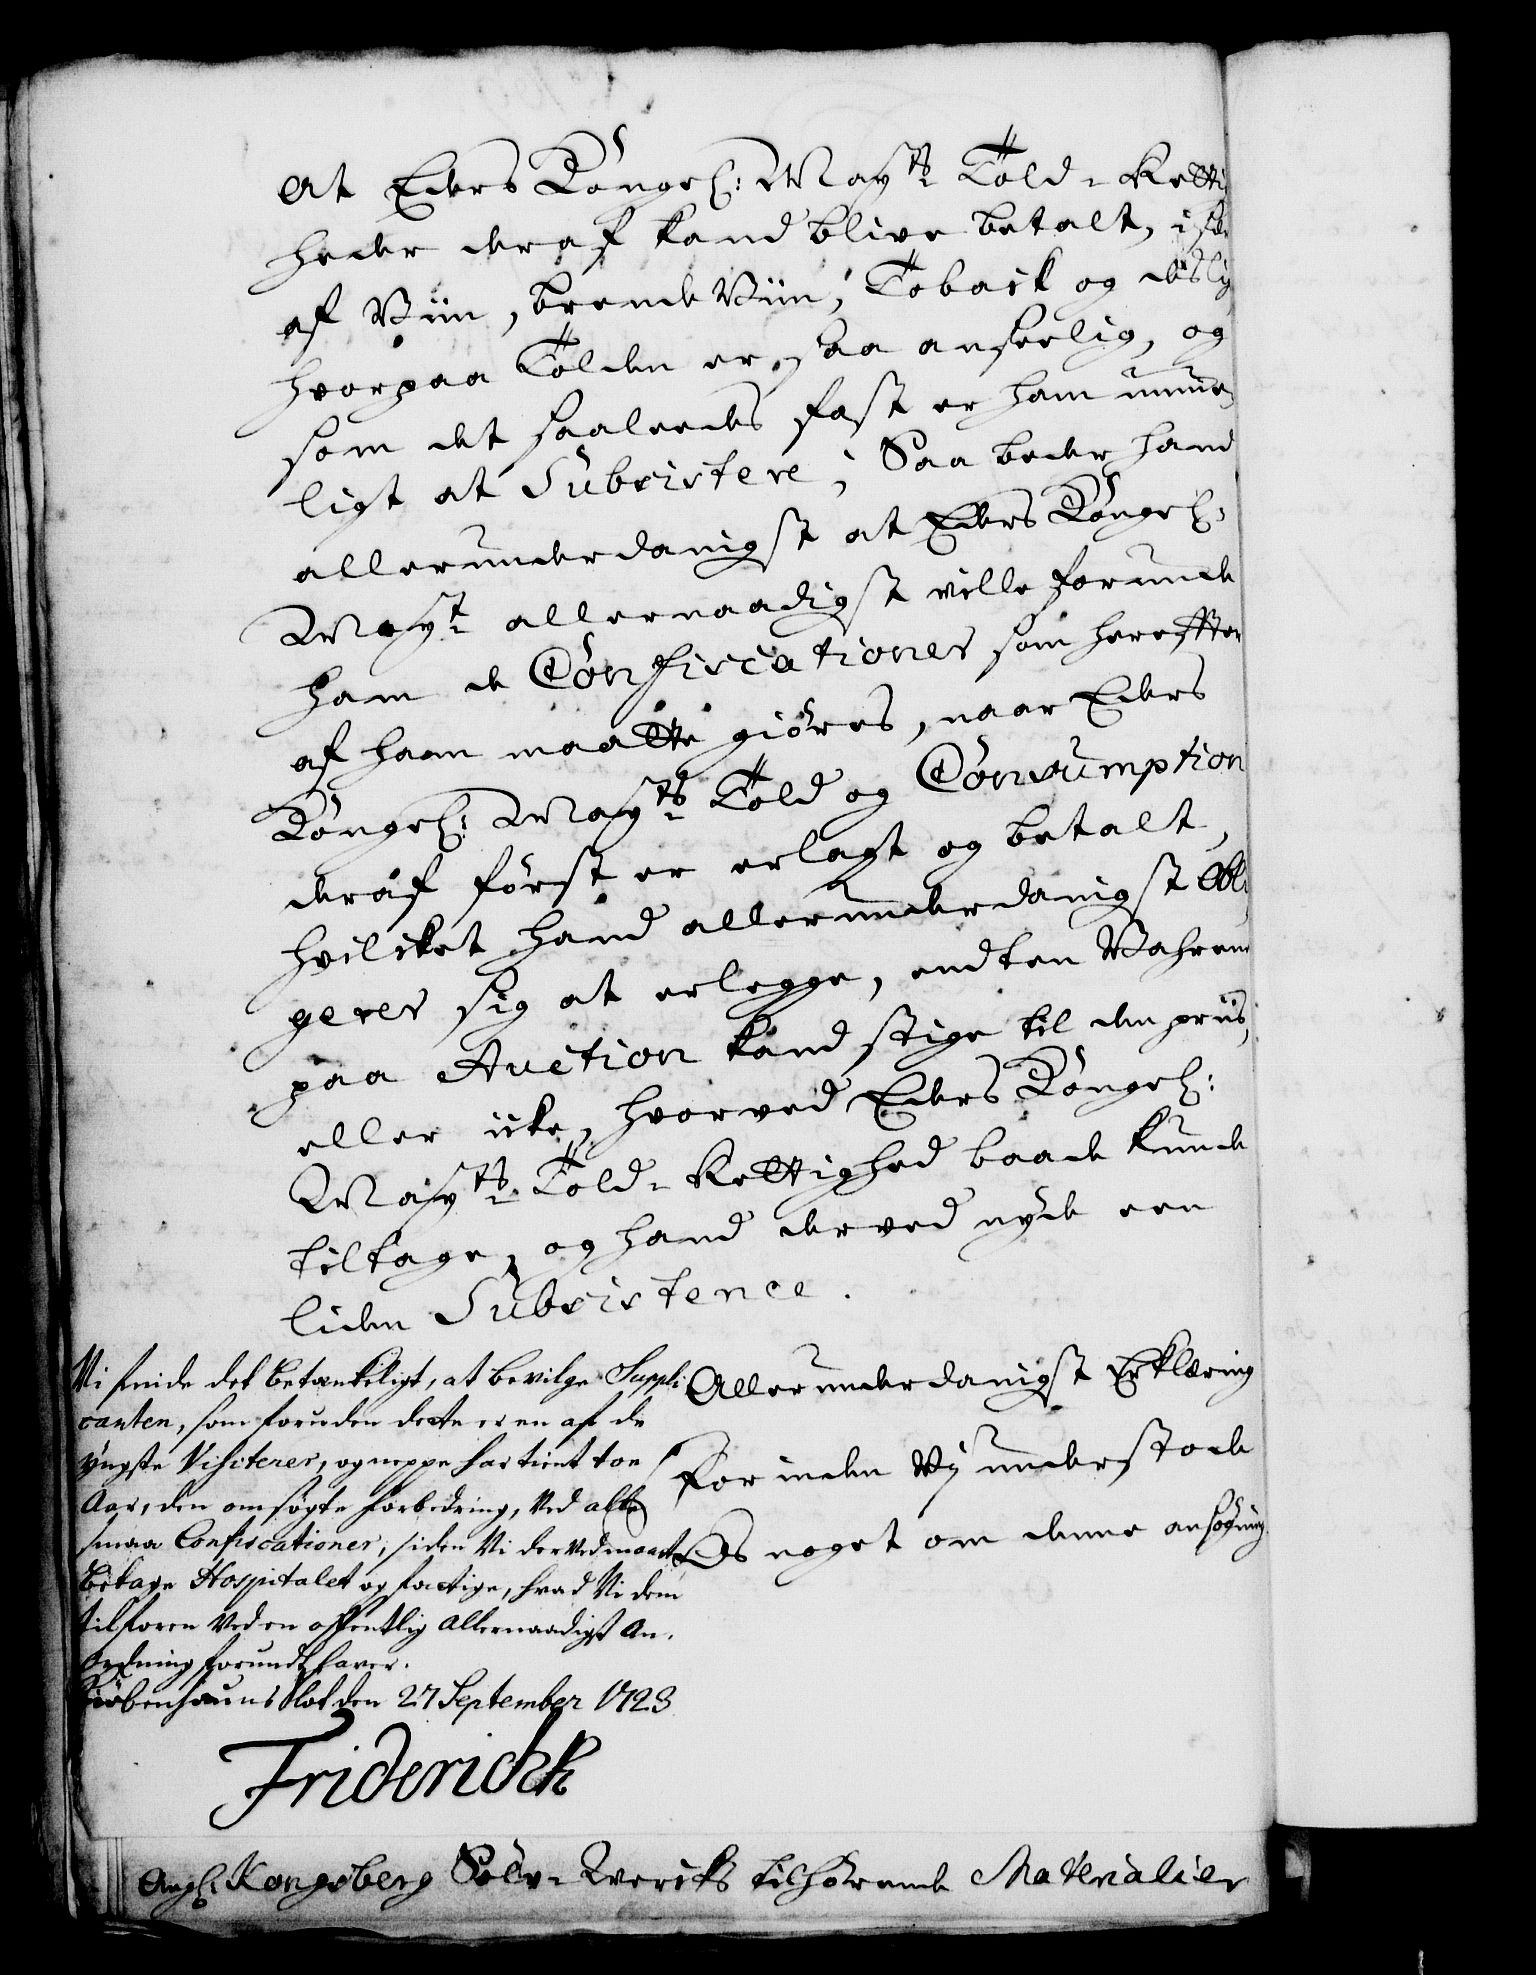 at Eders Kongel: Mayts Told-Retti
heder deraf kand blive betalt, i sær
af Viin, brendeViin, Toback og desli
hvorpaa Tolden er saa anseelig, og
som det saaledes fast er ham umue
ligt at Subsistere; Saa beder hand
allerunderdanigst at Eders Kongel:
Mayt allernaadigst ville forunde
ham de Confiscationer som herefter
af ham maatte giöres, naar Eders
Kongel: Mayts Told og Consumption
deraf först er erlagt og betalt,
hvilcket hand allerunderdanigst obli
gerer sig at erlegge, endten Vahrene
paa Auction kand stige til den priis,
eller icke, hvorved Eders Kongel:
Mayts Told-Rettighed baade kunde
tiltage, og hand derved nyde een
liden Subsistence.
Allerunderdanigst Erklæring
Forinden Vj understode
Os noget om denne ansögning
Vi finde det betænkeligt, at bevilge Suppli
canten, som foruden dette er en af de
yngste Visiterer, og neppe har tient toe
Aar, den omsögte forbedring, Ved alle
smaa Confiscationer, siden Vi derved maatte
betage Hospitalet og fattige, hvad Vi dem
tilforn Ved en offentlig allernaadigst An-
ordning forundt haver.
Kiöbenhauns Slot den 27 September 1723
Friderich
Angl: Kongsberg Sölv-Wercks tilhörende Materialier